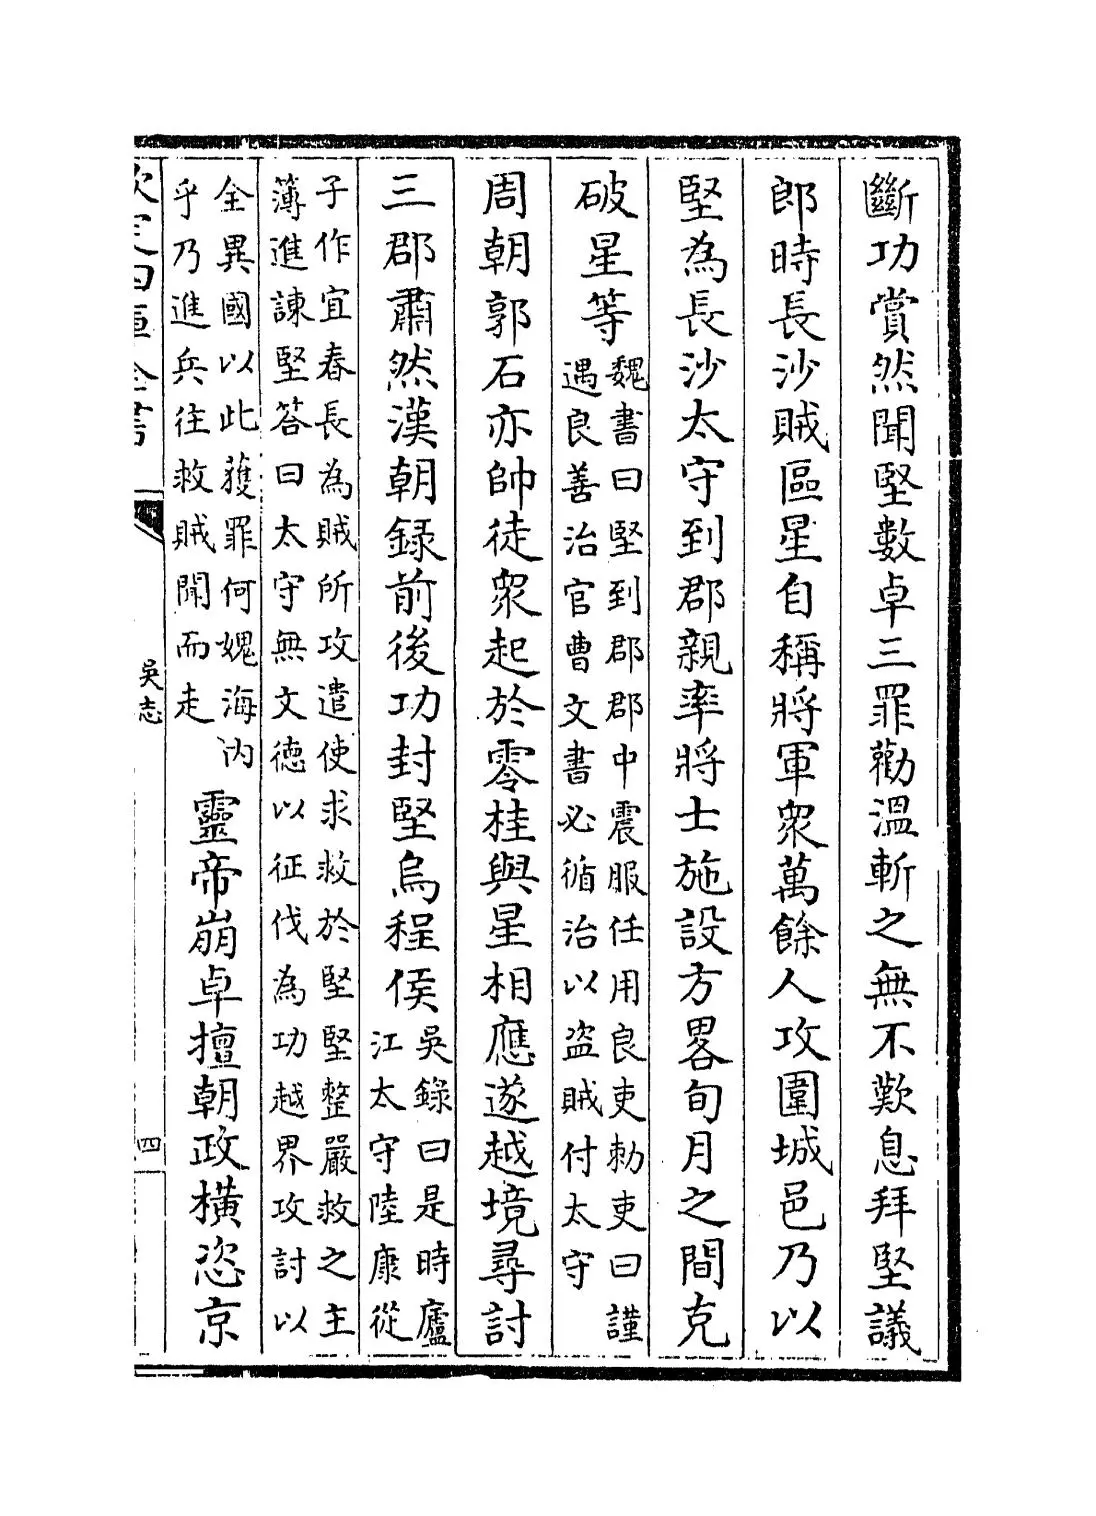 斷功賞然聞堅數卓三罪勸溫斬之無不歎息拜堅議
郎時長沙賊區星自稱將軍衆萬餘人攻圍城邑乃以
堅為長沙太守到郡親率將士施設方畧旬月之間克
破星等
魏書曰堅到郡郡中震服任用良吏勅吏曰謹
遇良善治官曹文書必循治以盜賊付太守
周朝郭石亦帥徒衆起於零桂與星相應遂越境尋討
三郡肅然漢朝録前後功封堅烏程侯
吳錄曰是時廬
江太守陸康從
子作宜春長為賊所攻遣使求救於堅堅整嚴救之主
薄進諫堅答曰太守無文德以征伐為功越界攻討以
全異國以此獲罪何媿海內
乎乃進兵往救賊聞而走
靈帝崩卓擅朝政橫恣京
欽定四庫全書
吳志
四